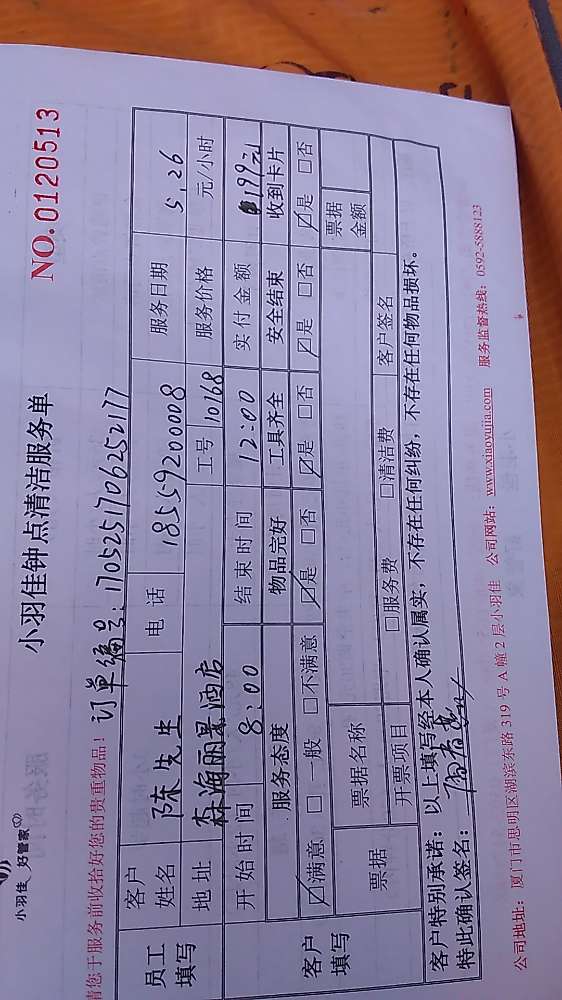 小羽佳 好管家
小羽佳钟点清洁服务单
NO.0120513
请您于服务前收拾好您的贵重物品！ 订单编号：170525170625217
员工填写 客户姓名 陈先生 电话 18559200008 服务日期 5.26
地址 森海丽景酒店 工号 10168 服务价格 元/小时
客户填写 开始时间 8:00 结束时间 12:00 实付金额 199元
服务态度 物品完好 工具齐全 安全结束 收到卡片
☑满意 □一般 □不满意 ☑是 □否 ☑是 □否 ☑是 □否 ☑是 □否
票据 票据名称 票据金额
开票项目 □服务费 □清洁费 客户签名
客户特别承诺：以上填写经本人确认属实，不存在任何纠纷，不存在任何物品损坏。
特此确认签名：
公司地址：厦门市思明区湖滨东路 319 号 A 幢 2 层小羽佳 公司网站：www.xiaoyujia.com 服务监督热线：0592-5888123